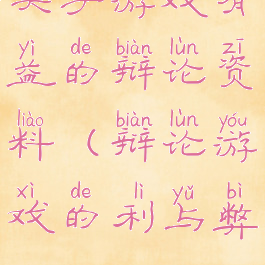 关于游戏有
yì de biàn lùn zī
益的辩论资
liào biàn lùn yóu
料（辩论游
xì de lì yǔ bì
戏的利与弊